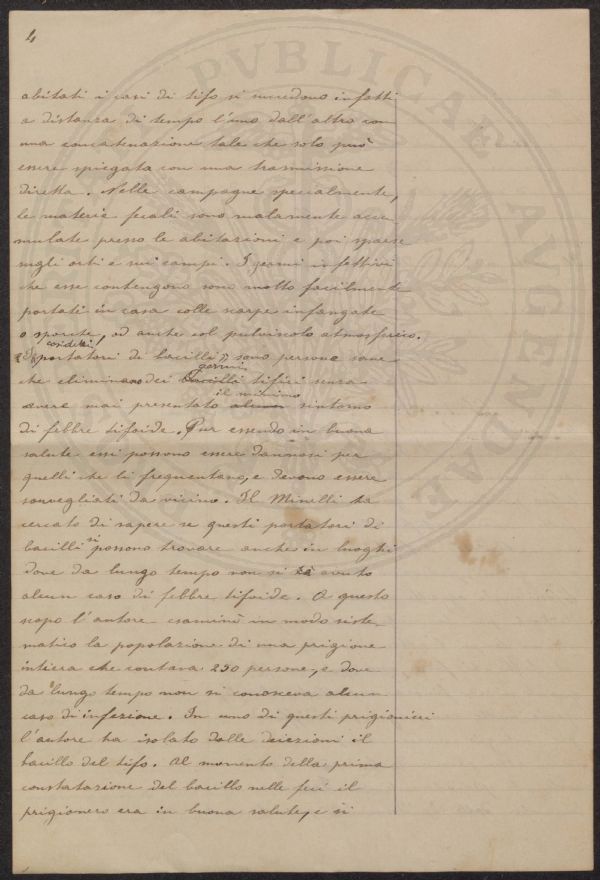 4
PVBLICAE AVGENDAE
abitati i casi di tifo si succedono infatti
a distanza di tempo l'uno dall'altro con
una concatenazione tale che solo può
essere spiegata con una trasmissione
diretta. Nelle campagne specialmente,
le materie fecali sono malamente accu
mulate presso le abitazioni e poi sparse
negli orti e nei campi. I germi infettivi
che esse contengono sono molto facilmente
portati in casa colle scarpe infangate
o sporche, od anche col pulviscolo atmosferico.
cosidetti
I "portatori di bacilli" sono persone sane
germi
che eliminano dei bacilli tifici senza
il minimo
avere mai presentato alcun sintomo
di febbre tifoide. Pur essendo in buona
salute essi possono essere dannosi per
quelli che li frequentano, e devono essere
sorvegliati da vicino. Il Minelli ha
cercato di sapere se questi portatori di
bacilli si possono trovare anche in luoghi
dove da lungo tempo non si è avuto
alcun caso di febbre tifoide. A questo
scopo l'autore esaminò in modo siste
matico la popolazione di una prigione
intiera che contava 250 persone, e dove
da lungo tempo non si conosceva alcun
caso di infezione. In uno di questi prigionieri
l'autore ha isolato dalle deiezioni il
bacillo del tifo. Al momento della prima
constatazione del bacillo nelle feci il
prigioniero era in buona salute, e si